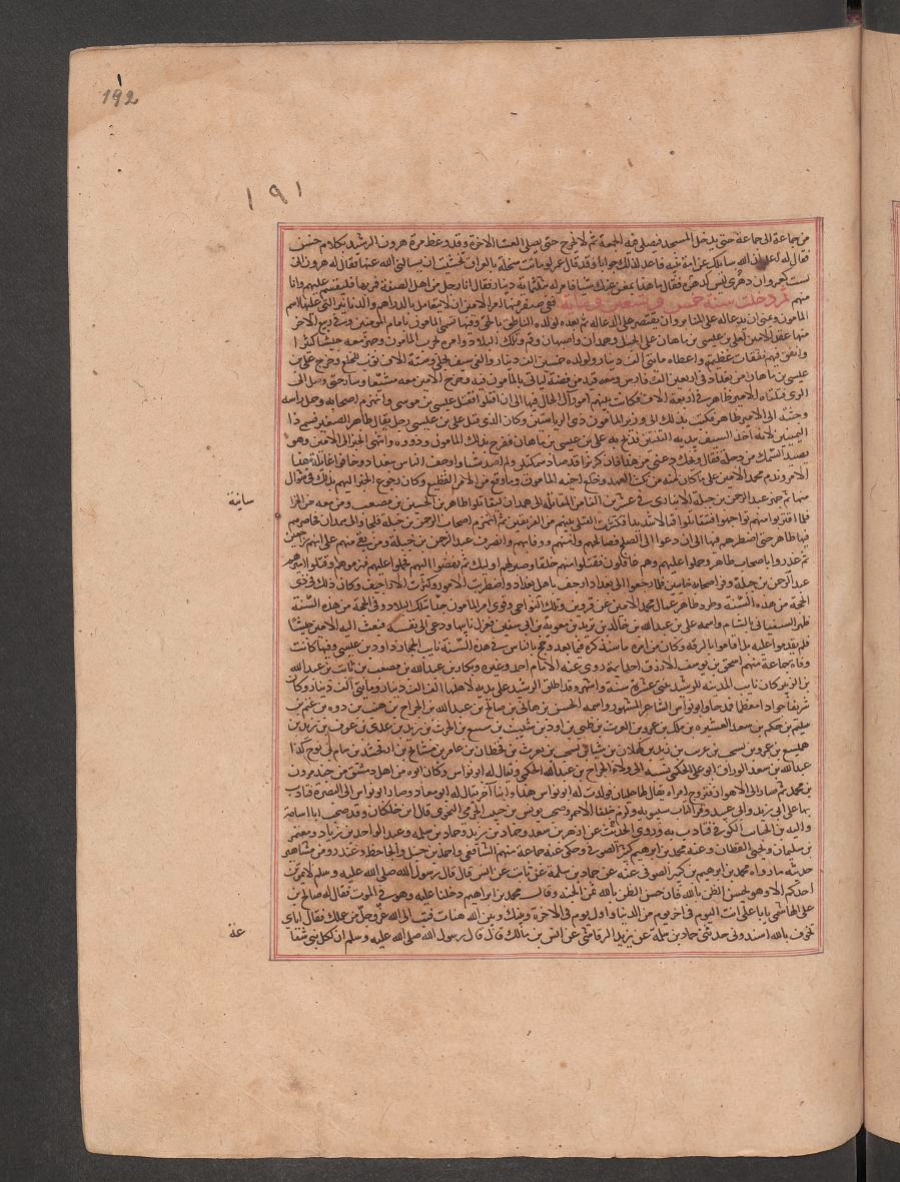 192
١٩١
من جماعة الى جماعة حتى يدخل المسجد فيصلي فيه الجمعة ثم لا يخرج حتى يصلي العشا الاخرة وقد وعظ مرة هرون الرشيد بكلام حسن
فقال له اعلم ان الله سايلك عن امة نبيه فاعد لذلك جوابا وقد قال عمر لو ماتت سخلة بالعراق لخشيت ان يسالني الله عنها فقال له هرون اني
لست كعمر وان دهري ليس كدهره فقال ما هذا بمغن عنك شيا فامر له بثلثماية دينار فقال انا رجل من اهل الصفة فمر بها فلتقسم عليهم وانا
منهم ثم دخلت سنة خمس وتسعين وماية ففي صفر منها امر الامين ان لا يتعامل بالدراهم والدنانير التي عليها اسم
المامون ونهى ان يدعا له على المنابر وان يقتصر على الدعا له ثم بعده لولده الناطق بالحق وفيها تسمى المامون بامام المومنين وفي ربيع الاخر
منها عقد الامين لعلي بن عيسى بن ماهان على الجبل وهمدان واصبهان وقم وتلك البلاد وامره بحرب المامون وجهز معه جيشا كثيرا
وانفق فيهم نفقات عظيمه واعطاه مايتي الف دينار ولولده خمسين الف دينار والفي سيف محلى وستة الاف ثوب للخلع وخرج علي بن
عيسى بن ماهان من بغداد في اربعين الف فارس ومعه قيد من فضة لياتي بالمامون فيه وخرج الامين معه مشيعا وسار حتى وصل الى
الري فتلقاه الامير طاهر في اربعة الاف فكانت بينهم امور آل الحال فيها الى ان اقتتلوا فقتل علي بن عيسى وانهزم اصحابه وحمل راسه
وجثته الى الامير طاهر فكتب بذلك الى وزير المامون ذي الرياستين وكان الذي قتل علي بن عيسى رجل يقال طاهر الصغير فسمي ذا
اليمينين لانه اخذ السيف بيديه الثنتين فذبح به علي بن عيسى بن ماهان ففرح بذلك المامون وذووه وانتهى الخبر الى الامين وهو
يصيد السمك من دجلة فقال ويحك دعني من هذا فان كوثرا قد صاد سمكتين ولم اصد شيا وارجف الناس ببغداد وخافوا غايلة هذا
الامر وندم محمد الامين على ما كان منه من نكث العهد وخلع اخيه المامون وما وقع من الامر الفظيع وكان رجوع الخبر اليه بذلك في شوال
منها ثم جهز عبد الرحمن بن جبلة الانباري في عشرين الفا من المقاتلة الى همدان ليقاتلوا طاهر بن الحسين بن مصعب ومن معه من الخرا
سانية
فلما اقتربوا منهم تواجهوا فتقاتلوا قتالا شديدا فكثرت القتلى بينهم من الفريقين ثم انهزم اصحاب عبد الرحمن بن جبلة فلجاوا الى همدان فحاصرهم
فيها طاهر حتى اضطرهم فيها الى ان دعوا الى الصلح فصالحهم وامنهم ووفا لهم وانصرف عبد الرحمن بن جبلة ومن بقي منهم على انهم راجعين
ثم غدروا باصحاب طاهر وحملوا عليهم وهم غافلون فقتلوا منهم خلقا وصبر لهم اوليك ثم نهضوا اليهم فحملوا عليهم فهزموهم وقتلوا اميرهم
عبد الرحمن بن جبلة وفر اصحابه خايبين فلما رجعوا الى بغداد ارجف باهل بغداد واضطربت الامور وكثرت الاراجيف وكان ذلك في ذي
الحجة من هذه السنة وطرد طاهر عمال محمد الامين عن قزوين وتلك النواحي وقوي امر المامون جدا بتلك البلاد وفي الحجة من هذه السنة
ظهر السفياني بالشام واسمه علي بن عبد الله بن خالد بن يزيد بن معوية بن ابي سفين فعزل نايبها ودعى الى نفسه فبعث اليه الامين جيشا
فلم يقدموا عليه بل اقاموا بالرقه وكان من امره ما سنذكره فيما بعد وحج بالناس في هذه السنة نايب الحجاز داود بن عيسى وفيها كانت
وفاة جماعة منهم اسحق بن يوسف الازرق احد ايمة روى عنه الامام احمد وغيره وبكار بن عبد الله بن مصعب بن ثابت بن عبد الله
بن الزبير كان نايب المدينه للرشيد ثنتي عشرة سنة واشهر وقد اطلق الرشيد على يديه لاهلها الف الف دينار ومايتي الف دينار وكان
شريفا جوادا معظما قدحا وابو نواس الشاعر المشهور واسمه الحسن بن هاني بن صالح بن عبد الله بن الجراح بن هنب بن دوه بن غنم بن
سليم بن حكم بن سعد العشيره بن ملك بن عمرو بن الغوث بن طي بن ادد بن شبيب بن سبيع بن الحرث بن زيد بن عدي بن عوف بن زيد بن
هميسع بن عمرو بن يشجب بن عريب بن زيد بن كهلان بن شبا بن يشجب بن يعرب بن قحطان بن عامر بن مشالخ بن ارفخشد بن سام بن نوح كذا
عبد الله بن سعد الوراق ابو علي الحكمي نسبه الى ولاء الجراح بن عبد الله الحكمي ويقال له ابو نواس وكان ابوه من اهل دمشق من جند مرون
بن محمد ثم صار الى الاهواز فتزوج امراه يقال لها جلبان فولدت له ابو نواس هذا وابنا آخر يقال له ابو معاد وصار ابو نواس الى البصرة فتادب
بها على ابي زيد وابي عبيد وقرا كتاب سيبويه ولزم خلفا الاحمر وصحب يونس بن حبيب الجرمي النحوي قال ابن خلكان وقد صحب ابا اسامة
واليه بن الحباب الكوفي فتادب به وروى الحديث عن ازهر بن سعد وحماد بن زيد وحماد بن سلمه وعبد الواحد بن زياد ومعتمر
بن سليمان ويحيى القطان وعنه محمد بن ابرهيم كثير الصوفي وحكى عنه جماعة منهم الشافعي واحمد بن حنبل والجاحظ وغندر ومن مشاهير
حديثه ما رواه محمد بن ابرهيم بن كثير الصوفي عنه عن حماد بن سلمة عن ثابت عن انس قال قال رسول الله صلى الله عليه وسلم لا يموتن
احدكم الا وهو يحسن الظن بالله فان حسن الظن بالله ثمن الجنه وقال محمد بن ابراهيم دخلنا عليه وهو في الموت فقال له صالح بن
علي الهاشمي يا با علي انت اليوم في اخر يوم من الدنيا واول يوم في الاخرة وبينك وبين الله هنات فتب الى الله عز وجل من عملك فقال اياي
تخوف بالله اسندوني حدثني حماد بن سلمة عن يزيد الرقاشي عن انس بن مالك قال قال رسول الله صلى الله عليه وسلم ان لكل نبي شفا
عة